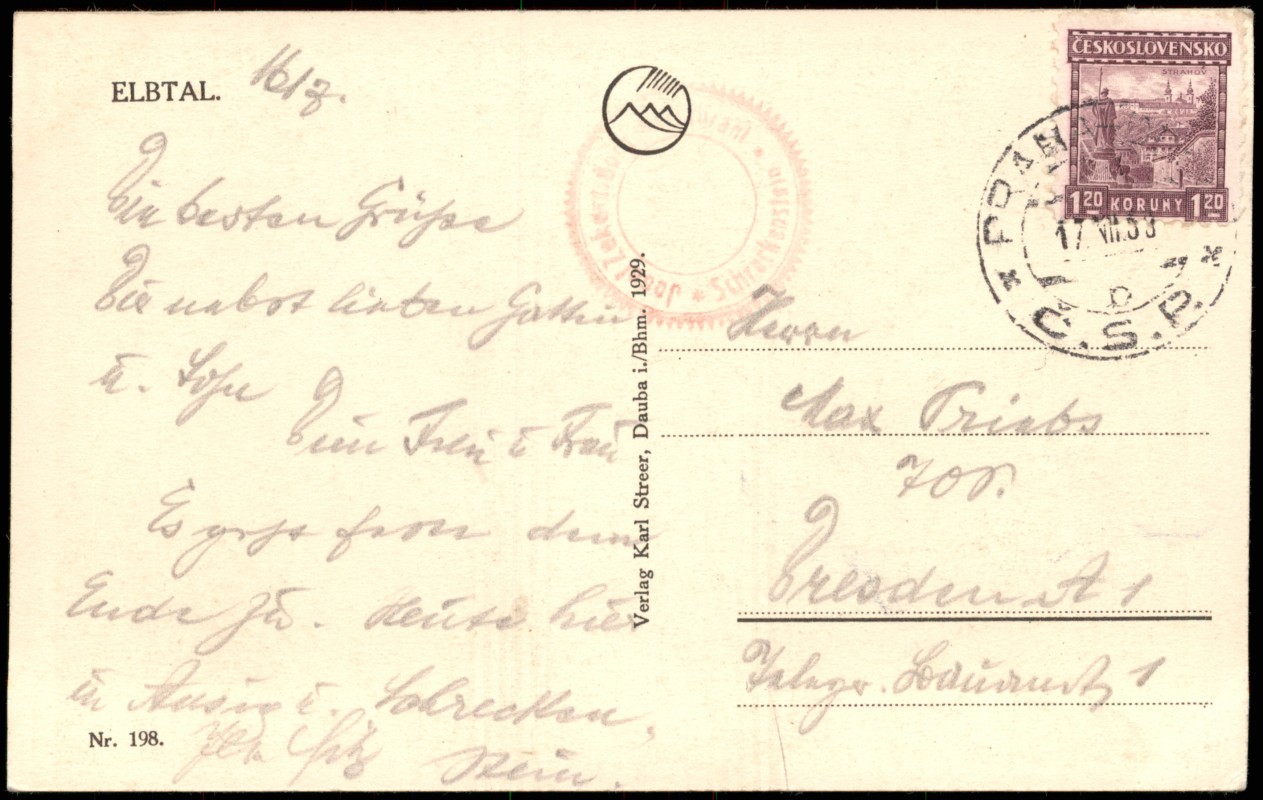 ELBTAL.
16/7.
Die besten Grüße
Die nebst lieben Gattin
u. Sohn
Dein u Frau
Es geht dem
Ende zu. Heute hier
in Aussig u. Schrecken
stein.
Nr. 198.
Verlag Karl Streer, Dauba i./Bhm. 1929.
Schreckenstein
ČESKOSLOVENSKO
STRAHOV
1.20 KORUNY 1.20
PRAHA
17.VII.33
Č.S.P.
Herrn
Max Triebs
Dresden A 1
Telegr. Bauamt 1